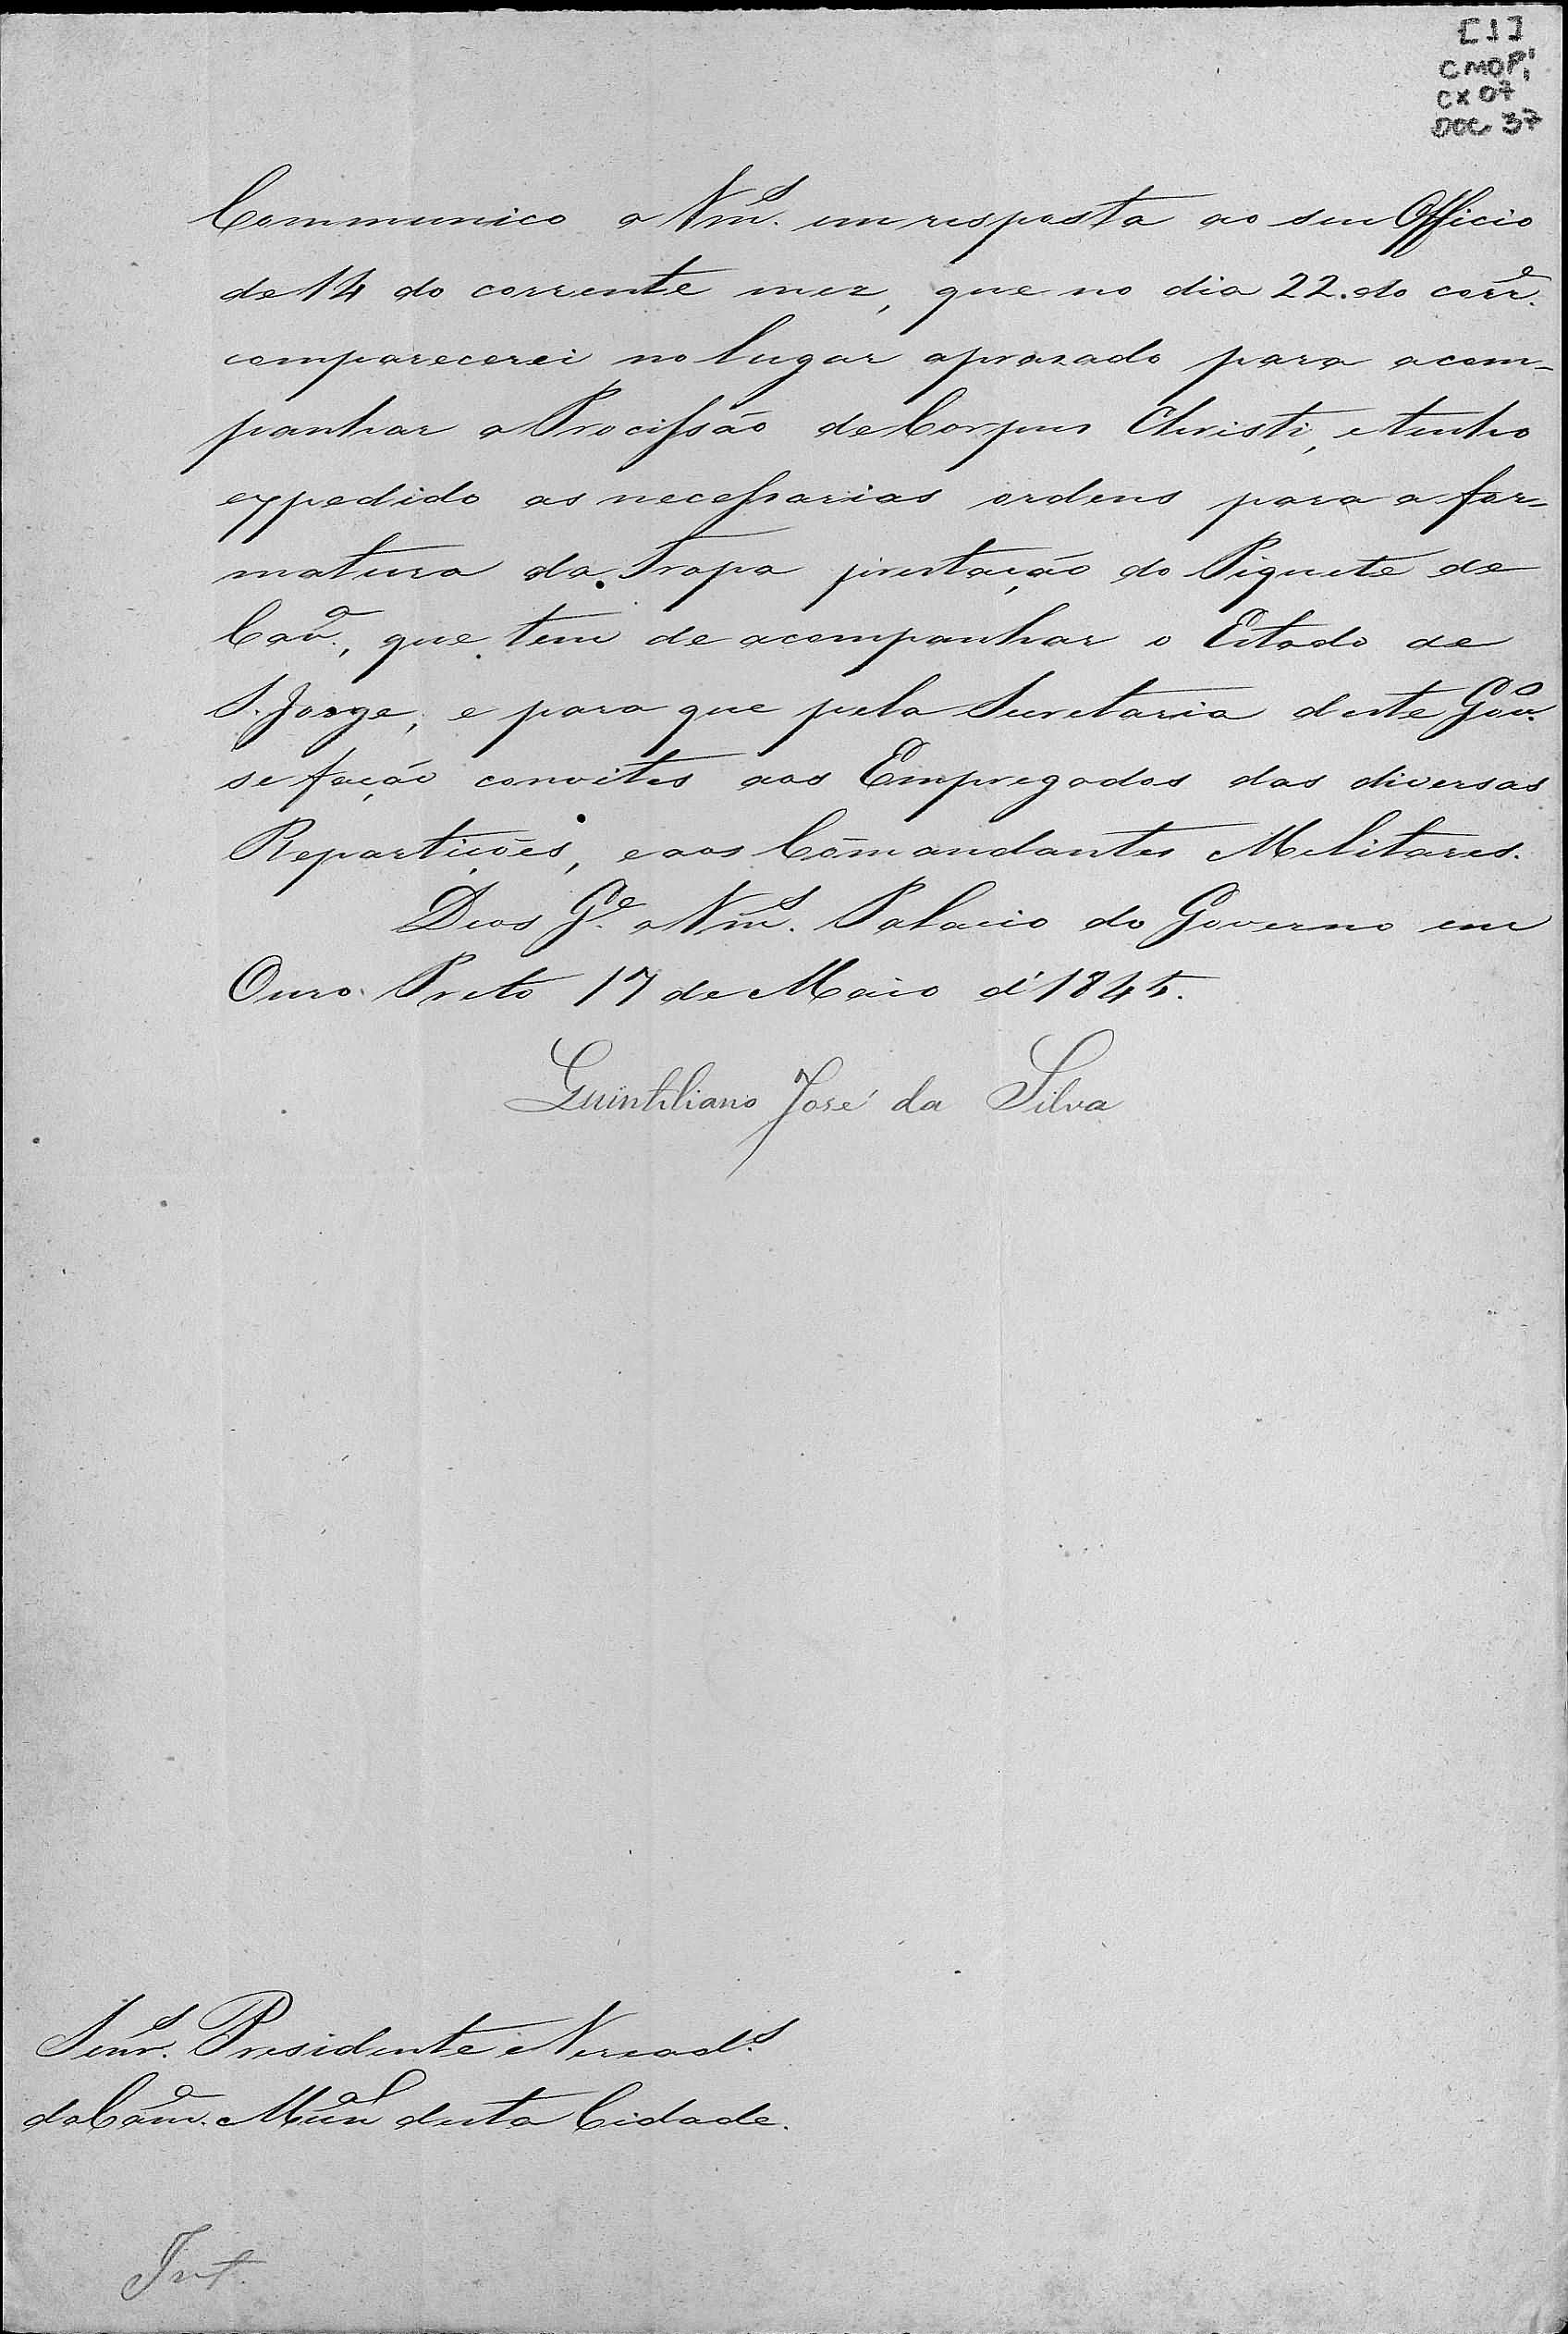 [1]
CMOP,
CX 07
DOC 37
Communico a Vm.ˢ em resposta ao seu Officio
de 14 do corrente mez, que no dia 22. do corr.ᵉ
comparecerei no lugar aprazado para acom-
panhar a Procissão de Corpus Christi, e tenho
expedido as necessarias ordens para a for-
matura da Tropa prestação do Piquete de
Cav.ᵃ, que tem de acompanhar o Estado de
S. Jorge, e para que pela Secretaria deste Gov.º
se fação convites aos Empregados das diversas
Repartições, e aos Cōmandantes Melitares.
Deos G.ᵉ a Vm.ˢ Palacio do Governo em
Ouro Preto 17 de Maio d'1845.
Quintiliano José da Silva
Senr.ˢ Presidente e Veread.ˢ
da Cam.ᵃ Mun.ᵃˡ desta Cidade.